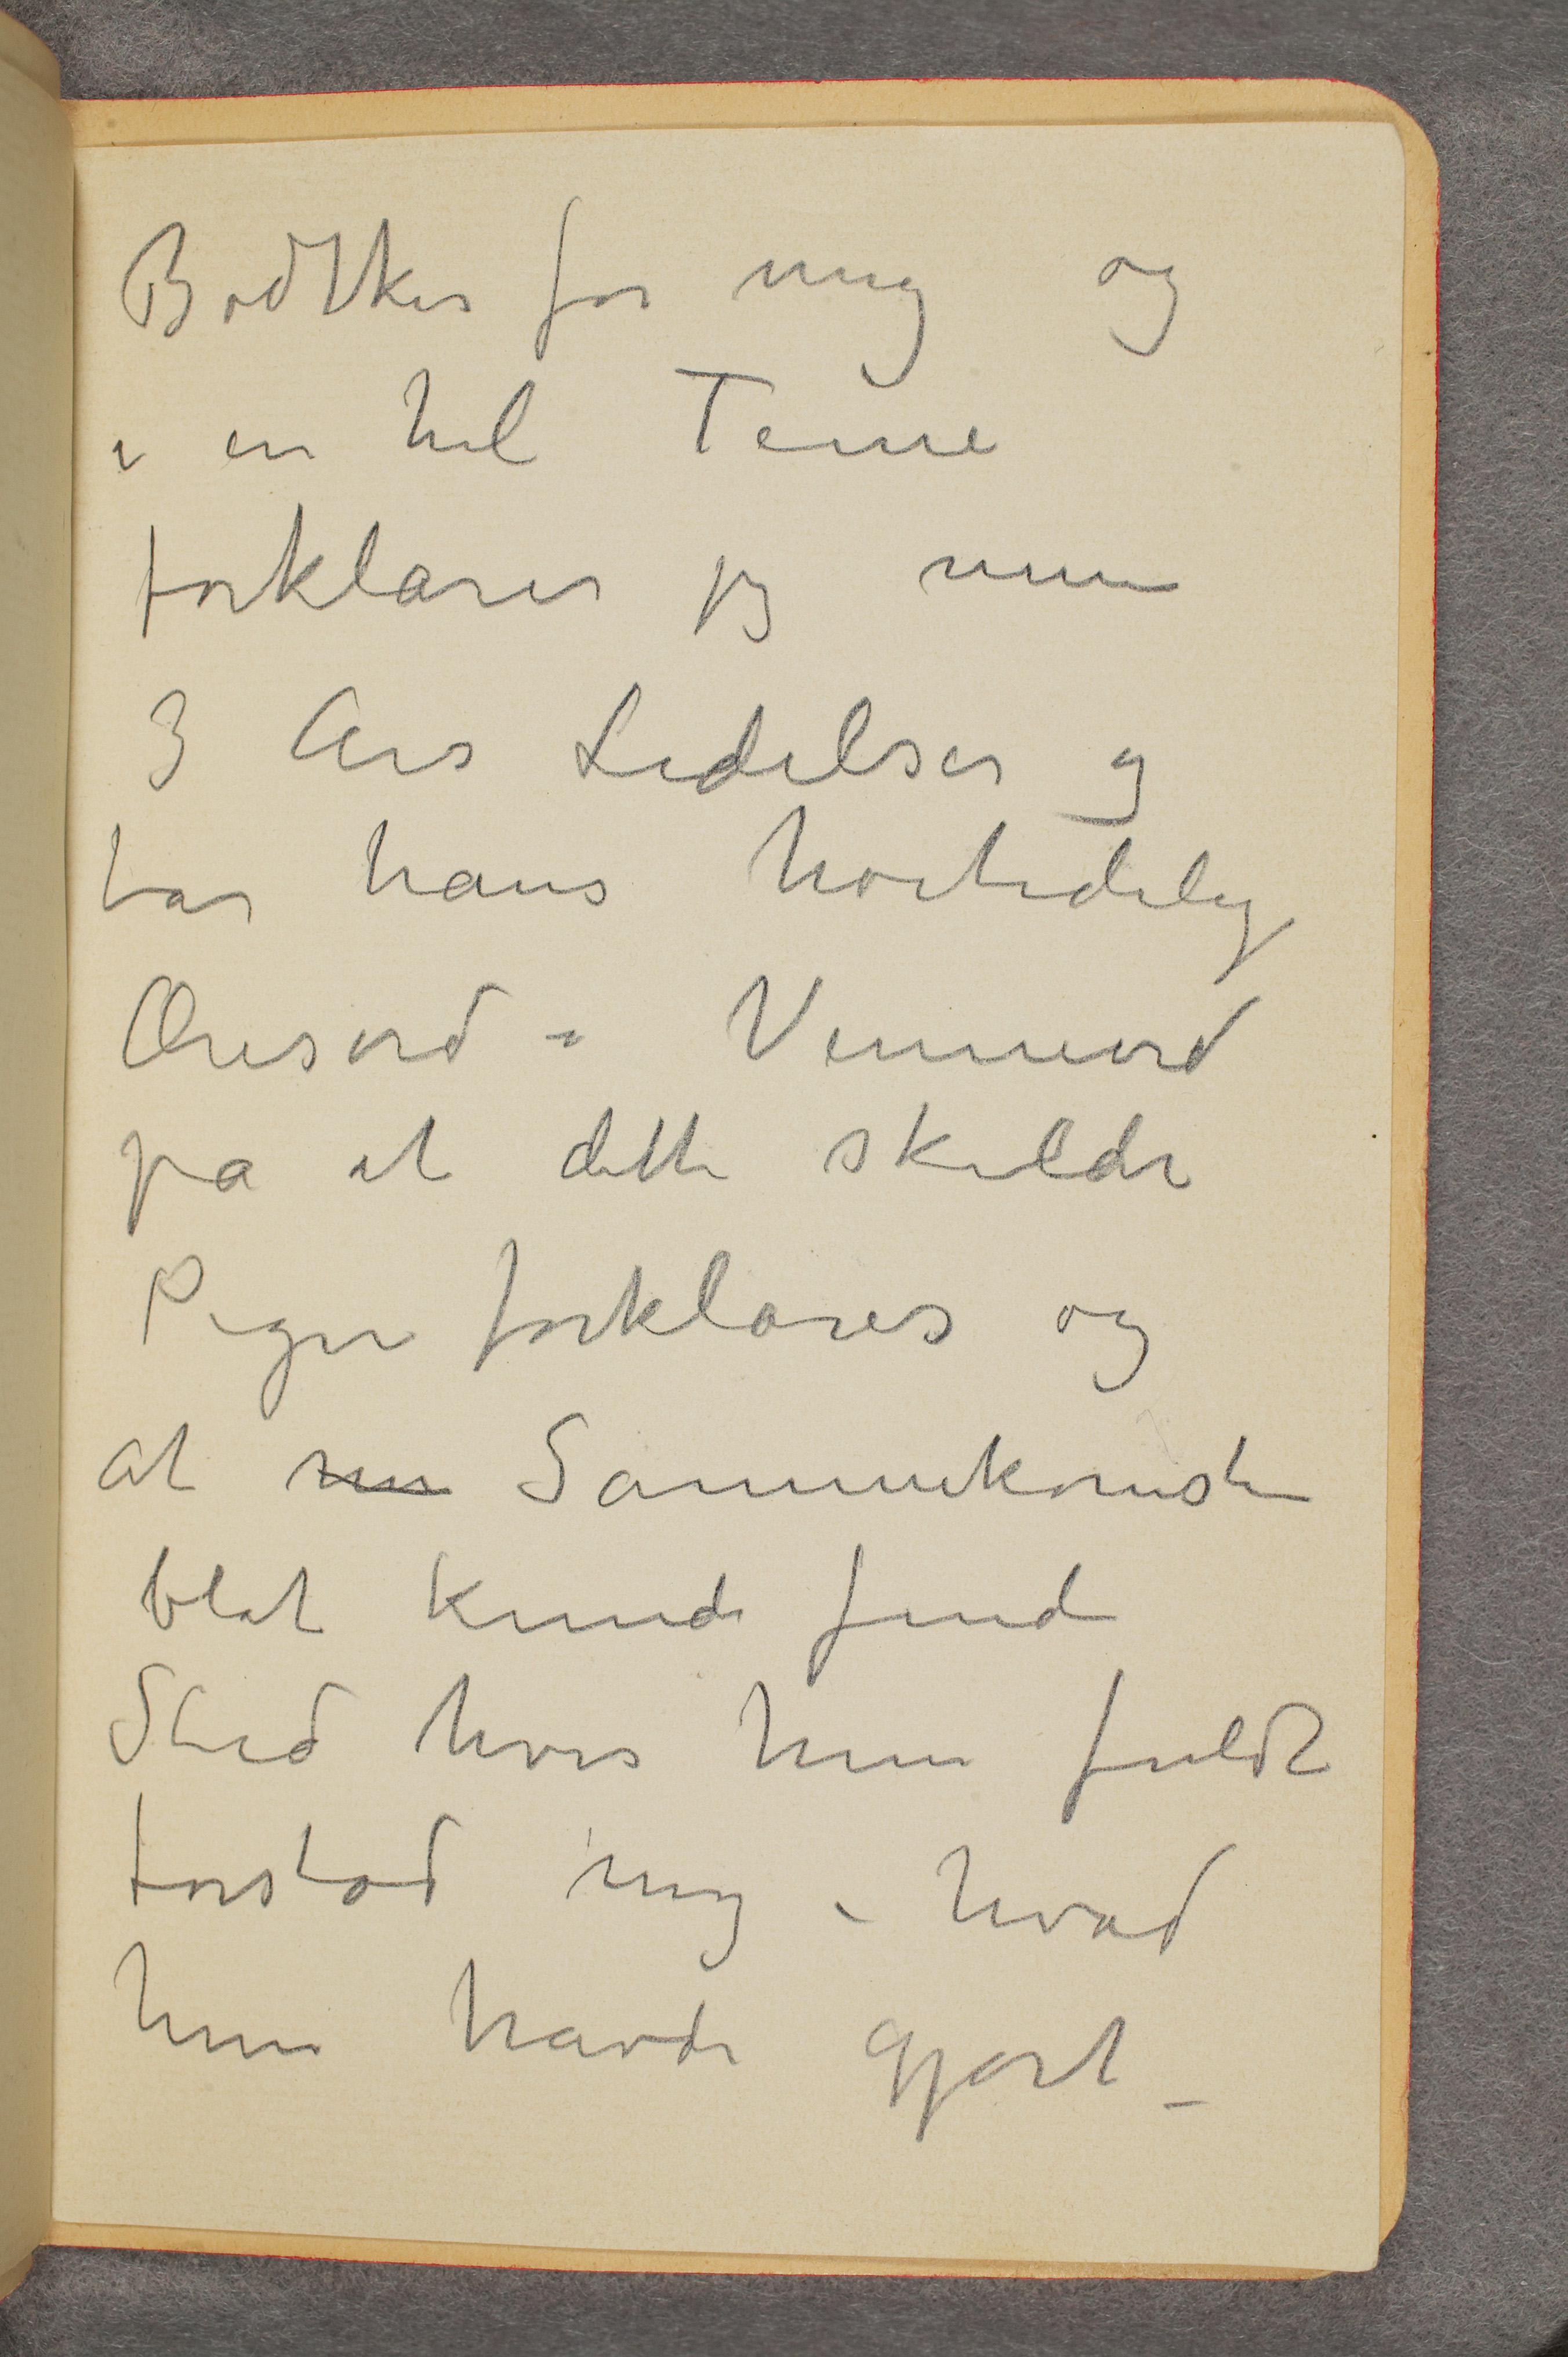 Bødtker for mig og
i en hel Time
forklarer jeg mine
3 Års Lidelser og
tar hans høitidelig
Æresord – Venneord
på at dette skulde
Pigen forklares og
at min Sammenkomsten
blot kunde finde
Sted hvis hun fuldt
forstod mig – hvad
hun havde gjort –